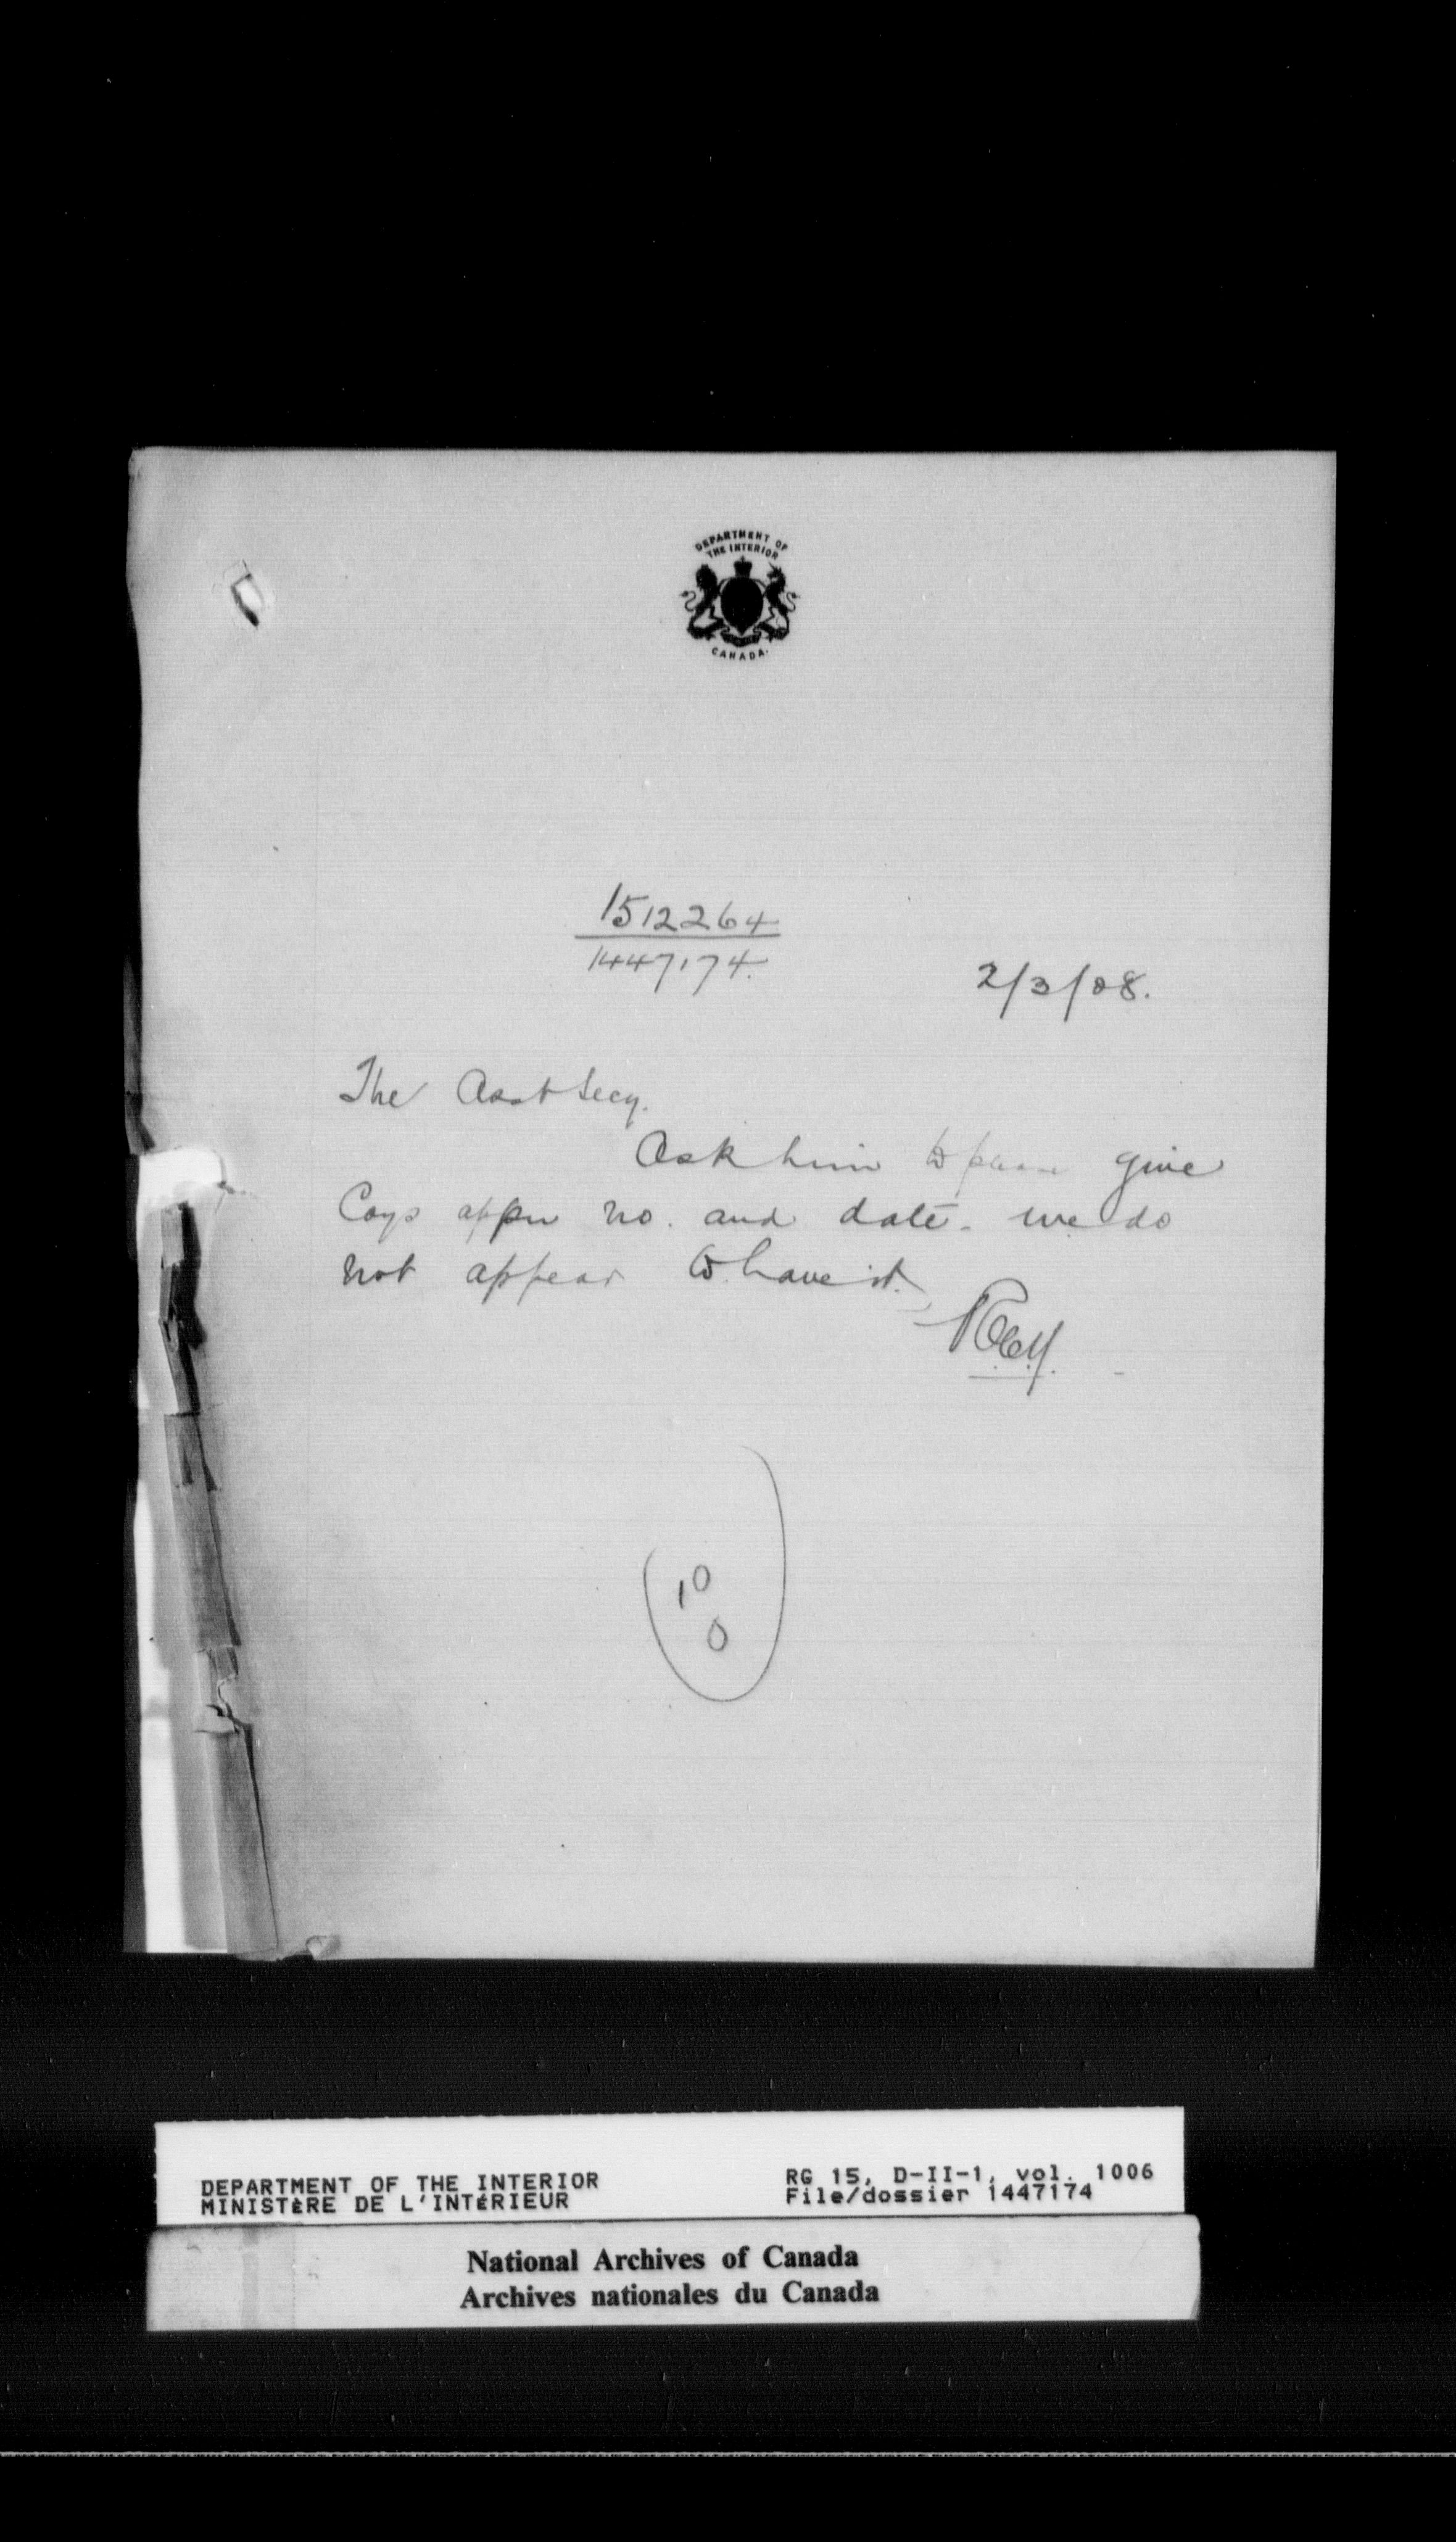 DEPARTMENT OF
THE INTERIOR
CANADA.
1512264
1447174.
2/3/08.
The Asst Secy.
Ask him to please give
Coys appn no. and date. we do
not appear to have it.
10
0
DEPARTMENT OF THE INTERIOR
MINISTÈRE DE L'INTÉRIEUR
RG 15, D-II-1, vol. 1006
File/dossier 1447174
National Archives of Canada
Archives nationales du Canada